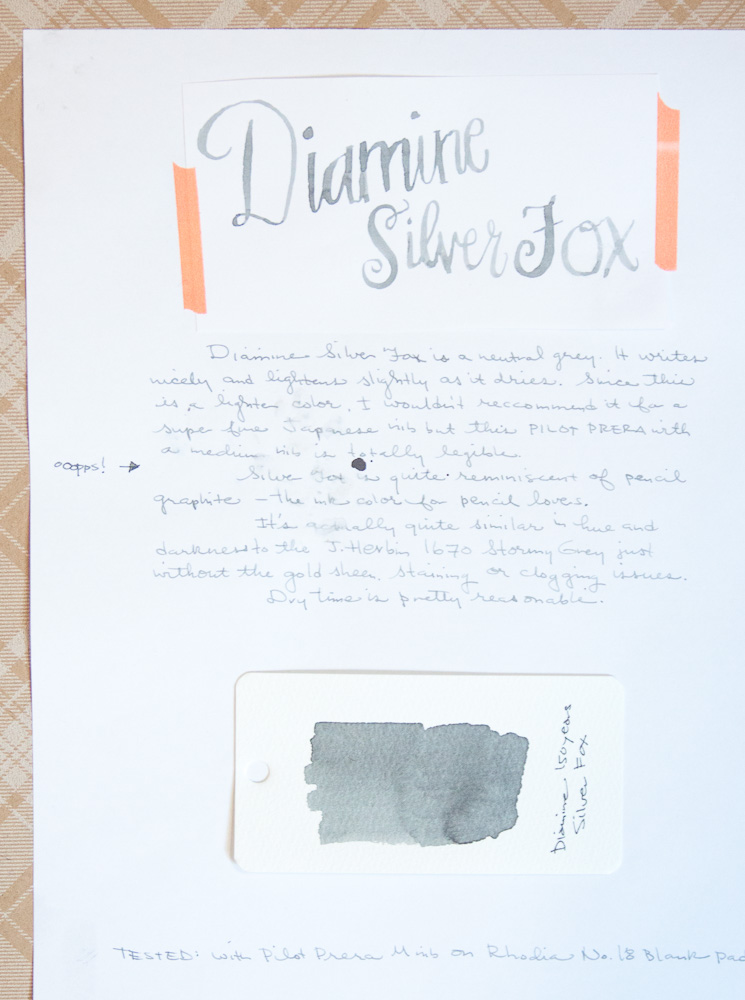 Diamine
Silver Fox
Diamine Silver Fox is a neutral grey. It writes
nicely and lightens slightly as it dries. Since this
is a lighter color, I wouldn't reccommend it for a
super fine Japanese nib but this PILOT PRERA with
a medium nib is totally legible.
ooopps!
Silver Fox is quite reminiscent of pencil
graphite - the ink color for pencil loves.
It's actually quite similar in hue and
darkness to the J. Herbin 1670 Stormy Grey just
without the gold sheen, staining or clogging issues.
Dry time is pretty reasonable.
Diamine 150 years
Silver Fox
TESTED: with Pilot Prera M nib on Rhodia No. 18 Blank pad